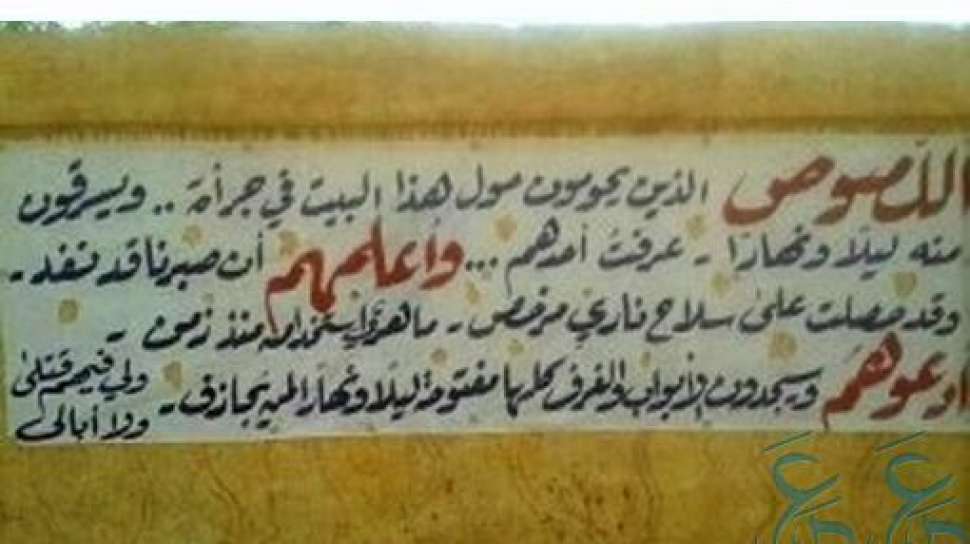 اللصوص الذين يحومون حول هذا البيت في جرأة .. ويسرقون
منه ليلًا ونهارًا - عرفتُ أحدهم ... وأعلمهم أن صبرنا قد نفد -
وقد حصلت على سلاح ناري مرخص - ماهر في استخدامه منذ زمن -
أدعوهم وسيجدون الأبواب والغرف كلها مفتوحة ليلًا ونهارًا لمن يجازف -
ولي فيهم قتلى
ولا أبالى